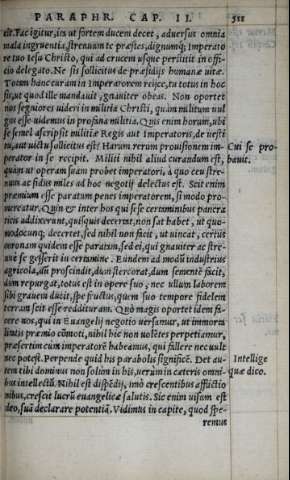 PARAPHR. CAP. II. 511
cit. Fac igitur, ius ut fortem ducem decet, adversus omnia
mala ingruentia, strenuum te præstes, dignumq; Imperato
re tuo Iesu Christo, qui ad crucem usque perstitit in offi-
cio delegato. Ne sis sollicitus de præsidijs humanæ uitæ.
Totam hanc curam in Imperatorem reijce, tu totus in hoc
sis, ut quod ille mandauit, gnauiter obeas. Non oportet
nos segniores uideri in militia Christi, quàm militum uul
gus esse uidemus in profana militia. Quis enim horum, ubi
se semel ascripsit militiæ Regis aut Imperatoris, de uesti
tu, aut uictu sollicitus est? Harum rerum prouisionem im-
perator in se recipit. Militi nihil aliud curandum est,
quàm ut operam suam probet imperatori, à quo ceu stre-
nuus ac fidus miles ad hoc negotij delectus est. Scit enim
præmium esse paratum penes imperatorem, si modo pro-
mereatur. Quin & inter hos qui sese certaminibus pancra
ticis addixerunt, quisquis decertat, non sat habet, ut quo-
modocunq; decertet, sed nihil non facit, ut uincat, certus
coronam quidem esse paratam, sed ei, qui gnauiter ac stre-
nuè se gesserit in certamine. Eundem ad modũ industrius
agricola, dũ proscindit, dum stercorat, dum sementẽ facit,
dum repurgat, totus est in opere suo, nec ullum laborem
sibi grauem ducit, spe fructus, quem suo tempore fidelem
terram scit esse reddituram. Quò magis oportet idem fa-
cere nos, qui in Euangelij negotio uersamur, ut immorta
litatis præmio cõmoti, nihil hic non uolẽtes perpetiamur,
præsertim cum imperatorẽ habeamus, qui fallere nec uult
nec potest. Perpende quid his parabolis significẽ. Det au-
tem tibi dominus non solùm in his, uerùm in cæteris omni-
bus intellectũ. Nihil est dispẽdij, imò crescentibus afflictio
nibus, crescit lucrũ euangelicæ salutis. Sic enim uisum est
deo, suã declarare potentiã. Vidimus in capite, quod spe-
remus
Cui se pro-
bauit.
Intellige
quæ dico.